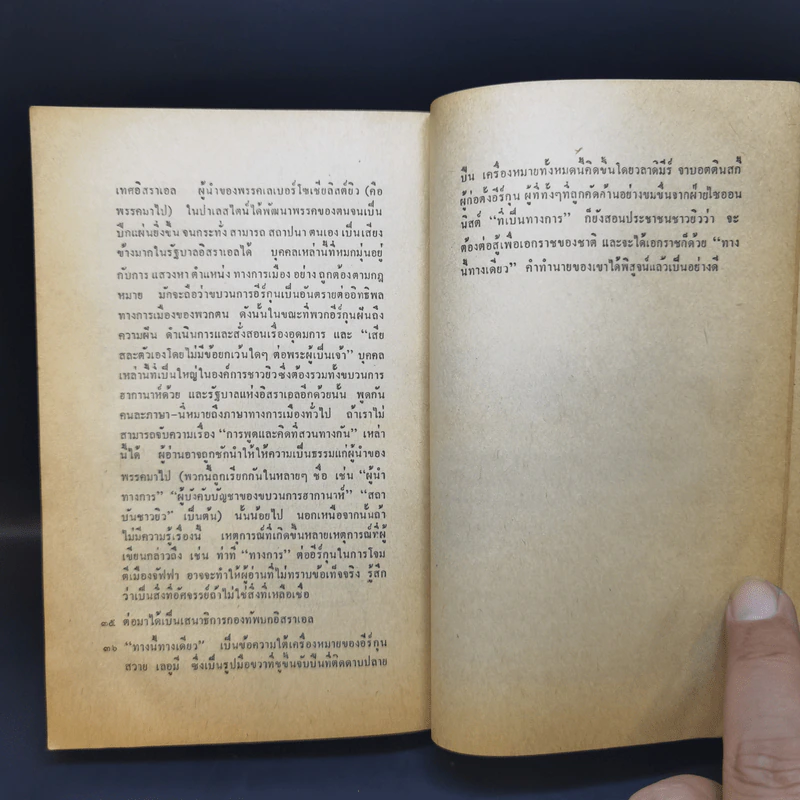 เทศอิสราเอล ผู้นำของพรรคเลเบอร์โซเชียลิสต์ยิว (คือ
พรรคมาไป) ในปาเลสไตน์ได้พัฒนาพรรคของตนจนเป็น
ปึกแผ่นยิ่งขึ้น จนกระทั่ง สามารถ สถาปนา ตนเอง เป็นเสียง
ข้างมากในรัฐบาลอิสราเอลได้ บุคคลเหล่านี้ที่หมกมุ่นอยู่
กับการ แสวงหา ตำแหน่ง ทางการเมือง อย่าง ถูกต้องตามกฎ
หมาย มักจะถือว่าขบวนการอีร์กุนเป็นอันตรายต่ออิทธิพล
ทางการเมืองของพวกตน ดังนั้นในขณะที่พวกอีร์กุนผันถึง
ความผัน ดำเนินการและสั่งสอนเรื่องอุดมการ และ “เสีย
สละตัวเองโดยไม่มีข้อยกเว้นใดๆ ต่อพระผู้เป็นเจ้า” บุคคล
เหล่านี้ที่เป็นใหญ่ในองค์การชาวยิวซึ่งต้องรวมทั้งขบวนการ
ฮากานาห์ด้วย และรัฐบาลแห่งอิสราเอลอีกด้วยนั้น พูดกัน
คนละภาษา–นี่หมายถึงภาษาทางการเมืองทั่วไป ถ้าเราไม่
สามารถจับความเรื่อง “การพูดและคิดที่สวนทางกัน” เหล่า
นี้ได้ ผู้อ่านอาจถูกชักนำให้ให้ความเป็นธรรมแก่ผู้นำของ
พรรคมาไป (พวกนี้ถูกเรียกกันในหลายๆ ชื่อ เช่น “ผู้นำ
ทางการ” “ผู้บังคับบัญชาของขบวนการฮากานาห์” “สถา
บันชาวยิว” เป็นต้น) นั้นน้อยไป นอกเหนือจากนั้นถ้า
ไม่มีความรู้เรื่องนี้ เหตุการณ์ที่เกิดขึ้นหลายเหตุการณ์ที่ผู้
เขียนกล่าวถึง เช่น ท่าที “ทางการ” ต่ออีร์กุนในการโจม
ตีเมืองจัฟฟา อาจจะทำให้ผู้อ่านที่ไม่ทราบข้อเท็จจริง รู้สึก
ว่าเป็นสิ่งที่อัศจรรย์ถ้าไม่ใช่สิ่งที่เหลือเชื่อ
๓๕ ต่อมาได้เป็นเสนาธิการกองทัพบกอิสราเอล
๓๖ “ทางนี้ทางเดียว” เป็นข้อความใต้เครื่องหมายของอีร์กุน
สวาย เลอูมี ซึ่งเป็นรูปมือขวาที่ชูขึ้นจับปืนที่ติดดาบปลาย
ปืน เครื่องหมายทั้งหมดนี้คิดขึ้นโดยวลาดิมีร์ จาบอตตินสกี้
ผู้ก่อตั้งอีร์กุน ผู้ที่ทั้งๆที่ถูกคัดค้านอย่างขมขื่นจากฝ่ายไซออน
นิสต์ “ที่เป็นทางการ” ก็ยังสอนประชาชนชาวยิวว่า จะ
ต้องต่อสู้เพื่อเอกราชของชาติ และจะได้เอกราชก็ด้วย “ทาง
นี้ทางเดียว” คำทำนายของเขาได้พิสูจน์แล้วเป็นอย่างดี